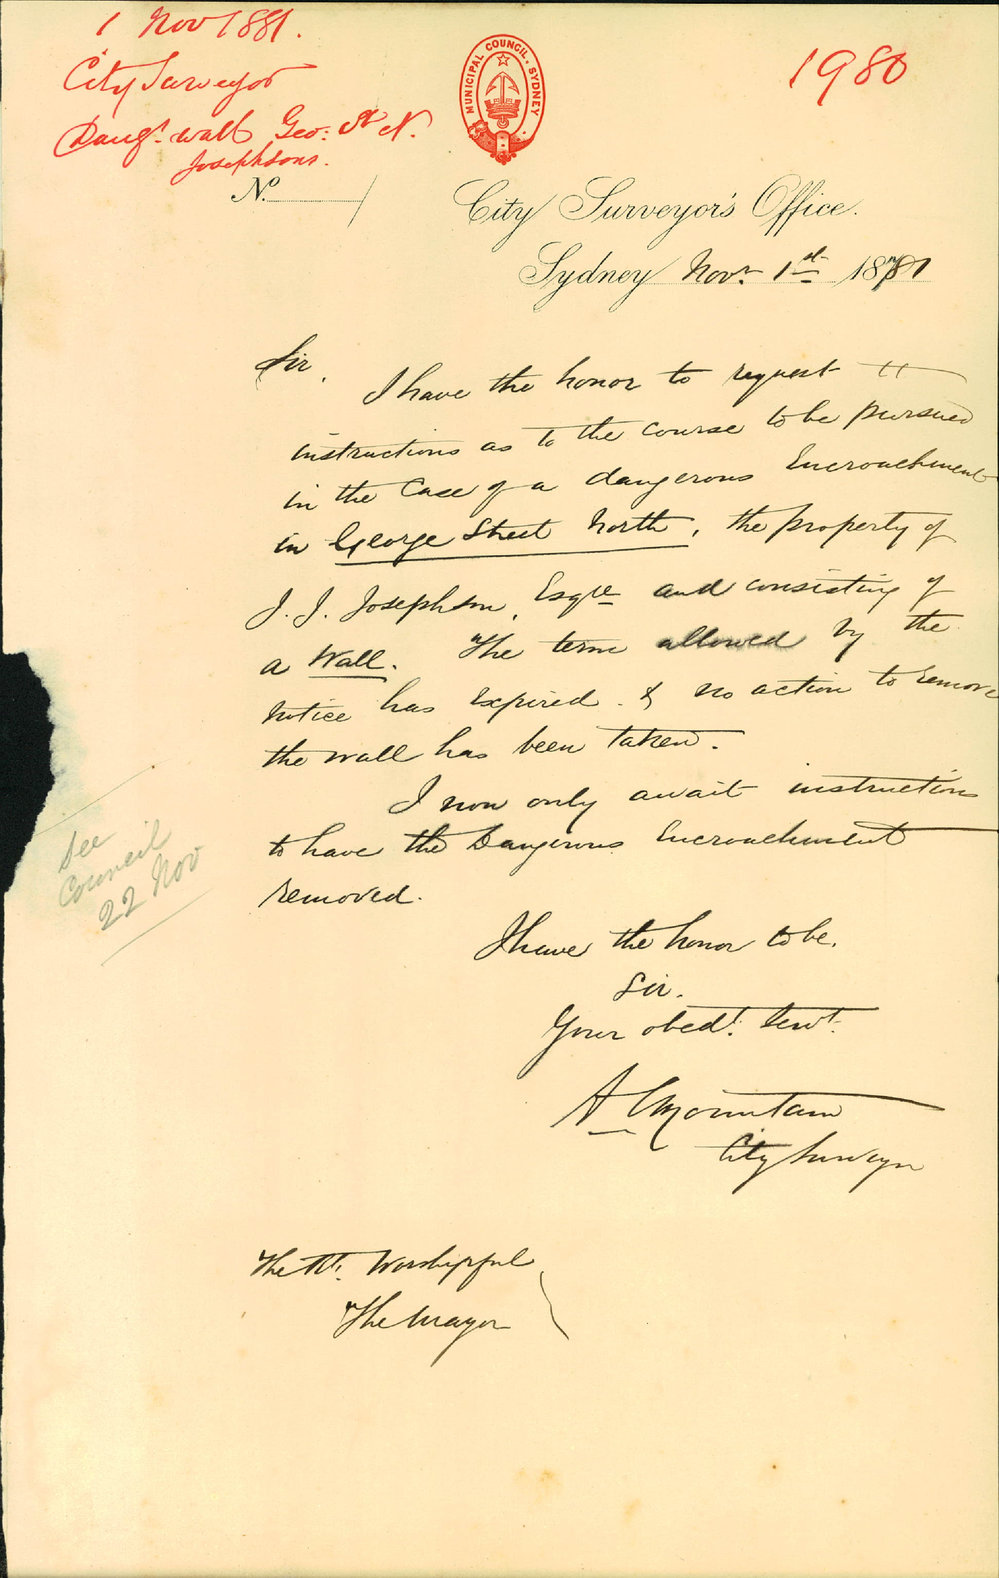 1 Nov 1881.
City Surveyor
Dang.s wall Geo: St N.
Josephsons.
1980
MUNICIPAL COUNCIL. SYDNEY
No.
City Surveyor's Office.
Sydney Novr. 1st 1881
Sir,
I have the honor to request
instructions as to the course to be pursued
in the Case of a dangerous Encroachment
in George Street North, the property of
J. J. Josephson, Esqre and consisting of
a Wall. The term allowed by the
notice has expired. & no action to remove
the wall has been taken.
I now only await instructions
to have the Dangerous Encroachment
removed.
I have the honor to be.
Sir.
Your obedt. Servt.
A C Mountain
City Surveyor
The Rt. Worshipful
The Mayor
See
Council
22 Nov